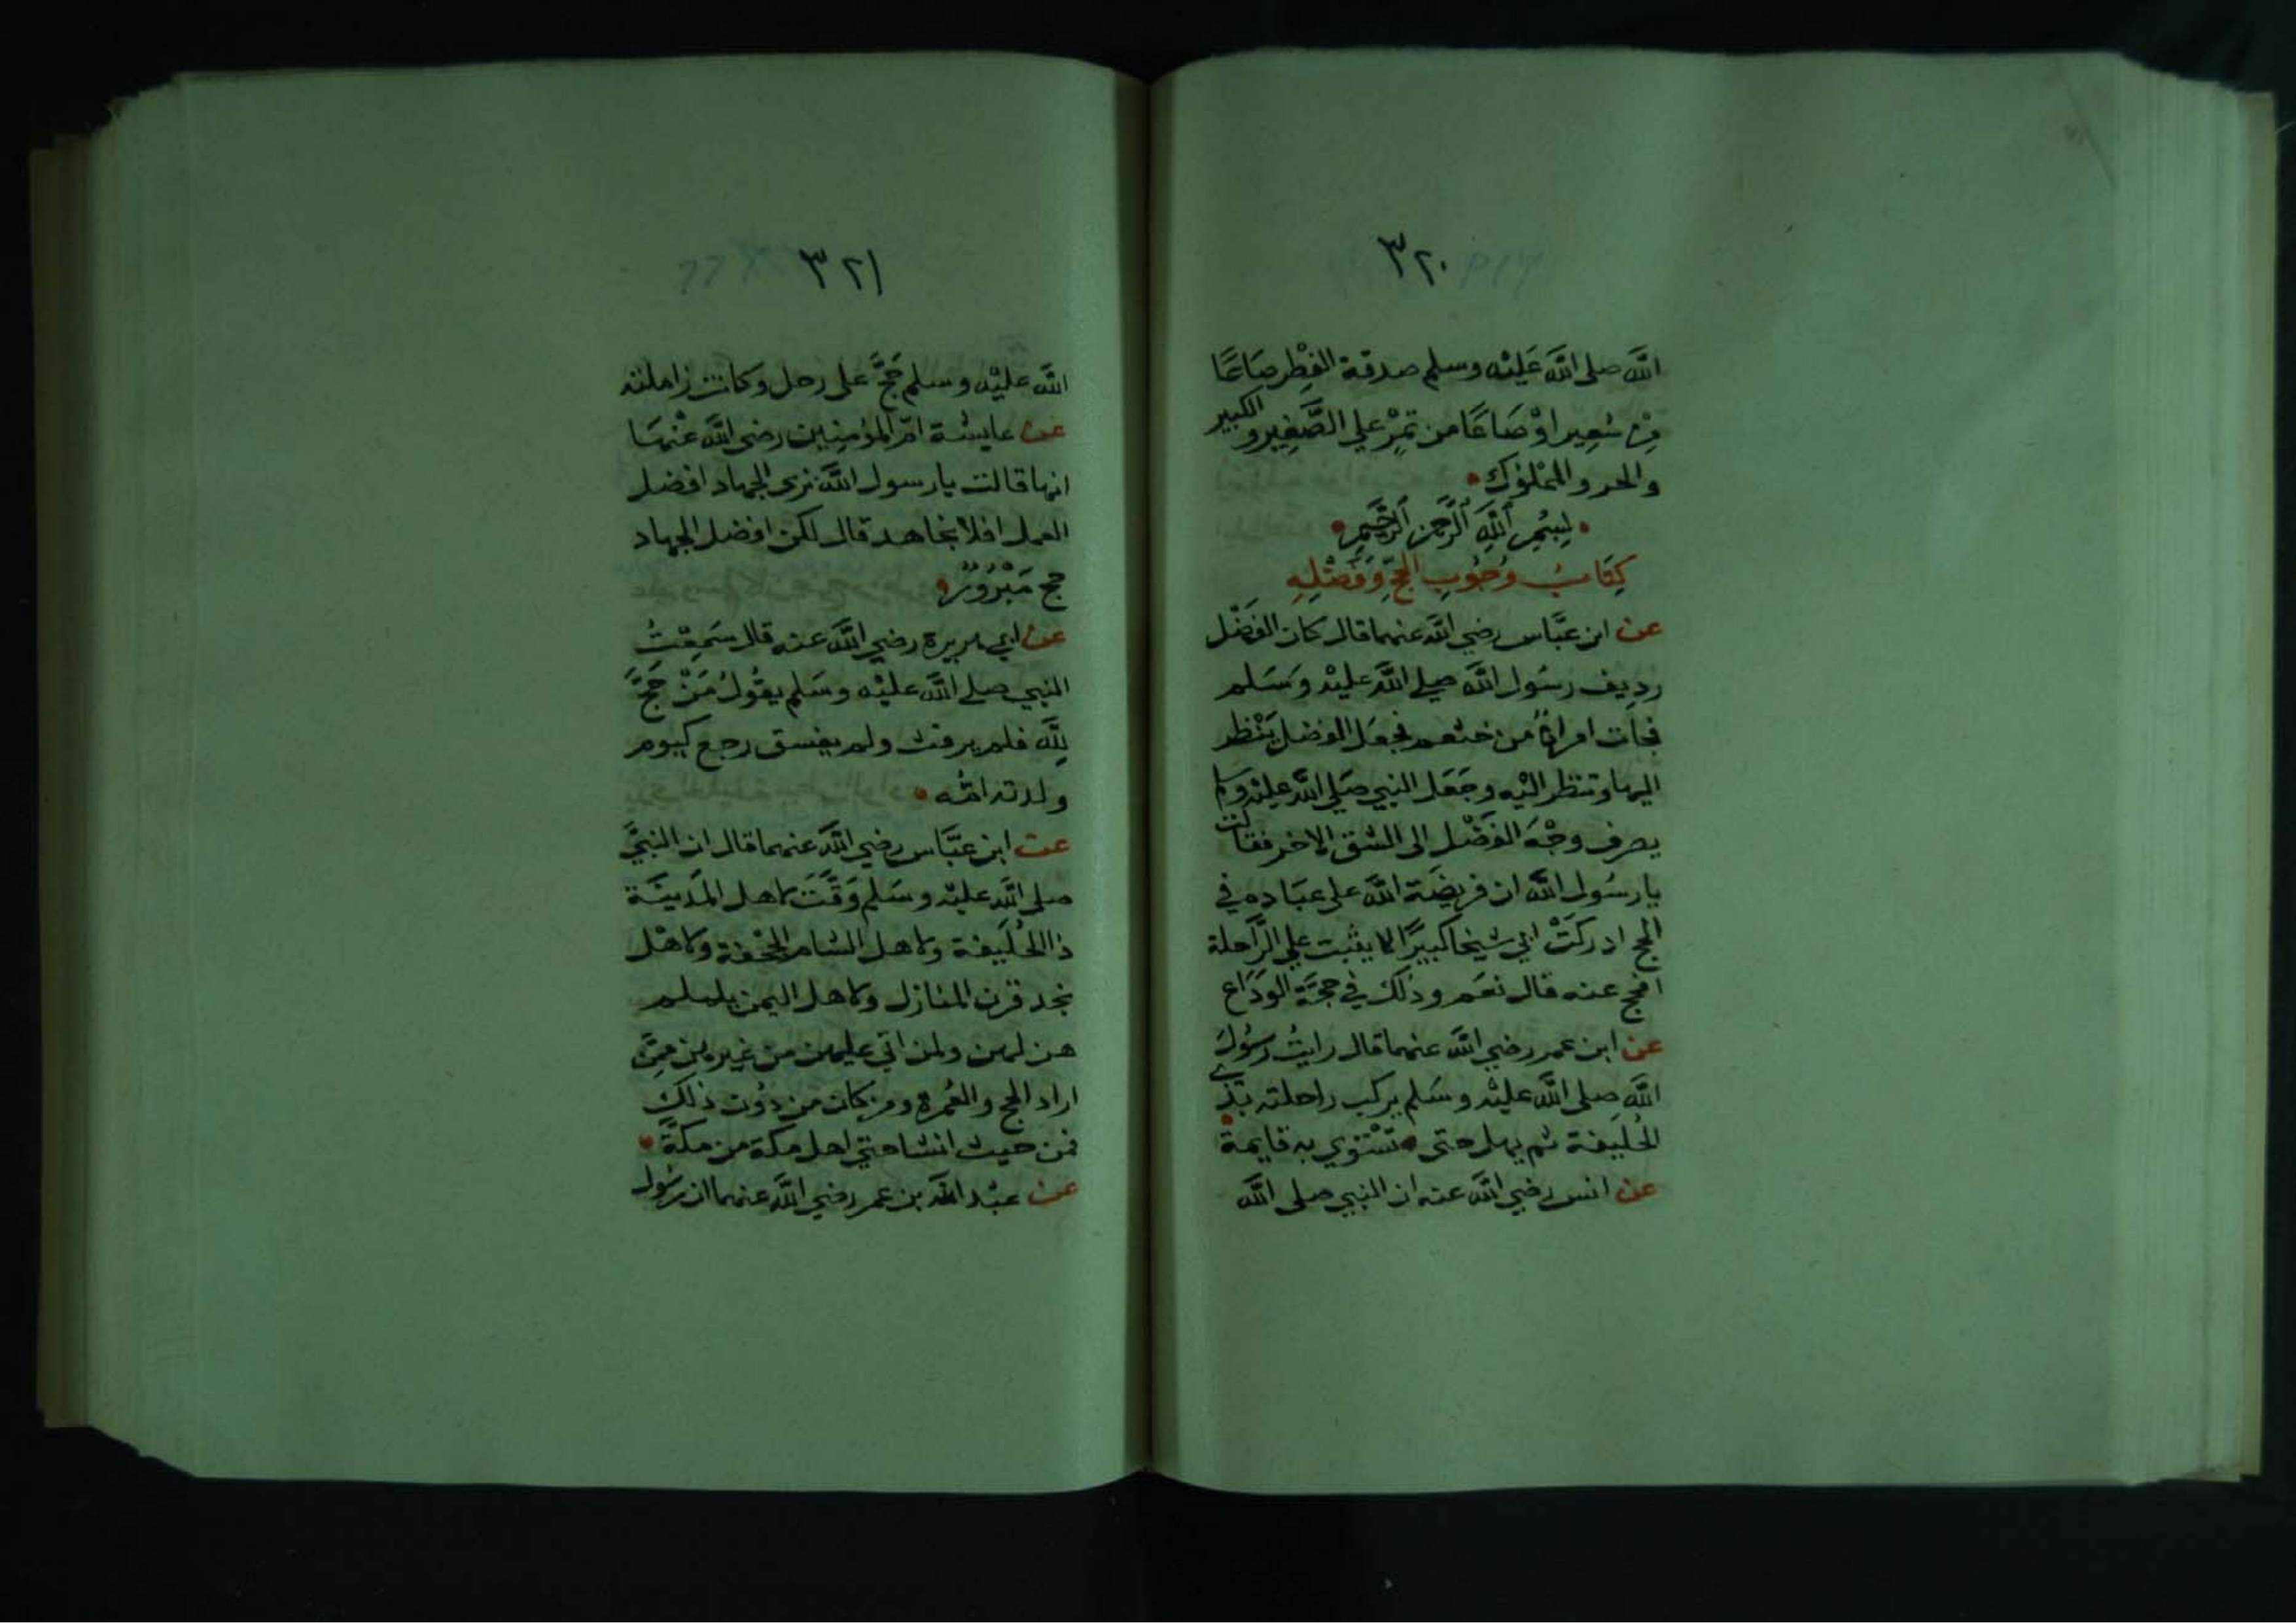 ٣٢٠
الله صلى الله عَليْه وسلم صدقة الفِطْر صَاعًا
مِن شعِير اوْ صَاعًا من تمْرٍ علي الصَّغِير والكبير
والحر والممْلوُك
بِسْمِ اللهِ الرَّحمنِ الرَّحِيمِ
كِتَابُ وُجُوبِ الحجِّ وَفَضْلِهِ
عن ابن عبَّاس رضي الله عنهما قال كان الفَضْل
رديف رسُول الله صلي الله عليْه وسَلم
فجات امراةٌ من خثعم فجعَل الفضل يَنْظر
اليها وتنظر اليْه وجَعَل النبي صَلي الله عليْه وسلم
يصرف وجْهَ الفَضْل الى الشق الاخر فقالت
يا رسُول الله ان فريضَة الله على عبَاده في
الحج ادركَتْ ابي شيخا كبيرًا لا يثبت علي الرَّاحلة
افحج عنه قال نعَم وذلك في حجَّة الودَاع
عن ابن عمر رضي الله عنهما قال رايتُ رسُولَ
الله صلى الله عليْه وسَلم يركب راحلته بذي
الحُليفة ثم يهل حتى تسْتوي به قايمة
عن انس رضي الله عنه ان النبي صلى الله
٣٢١
الله عليْه وسلم حَجَّ على رحل وكانت زاملته
عن عايشة امّ المؤمِنِين رضي الله عنْهَا
انها قالت يا رسول الله نرى الجهاد افضل
العمل افلا نجاهد قال لكن افضل الجهاد
حج مَبْرُوْرٌ
عن ابي هريرة رضي الله عنه قال سَمِعْتُ
النبي صلى الله عليْه وسَلم يقُولُ مَنْ حَجَّ
لِلَّه فلم يرفث ولم يفسق رجع كيوم
ولدته امّه
عن ابن عبَّاس رضي الله عنهما قال ان النبيَّ
صلى الله عليْه وسَلم وَقَّتَ لاهل المَدينَة
ذا الحُلَيفة ولاهل الشام الجحْفة ولاهْل
نجد قرن المنازل ولاهل اليمن يلملم
هن لهن ولمن اتي عليهن من غيرهن مِمّن
اراد الحج والعُمرة ومن كان من دوُن ذلك
فمن حيث انشا حتي اهل مكة من مكة
عن عبْد الله بن عمر رضي الله عنهما ان رسُول